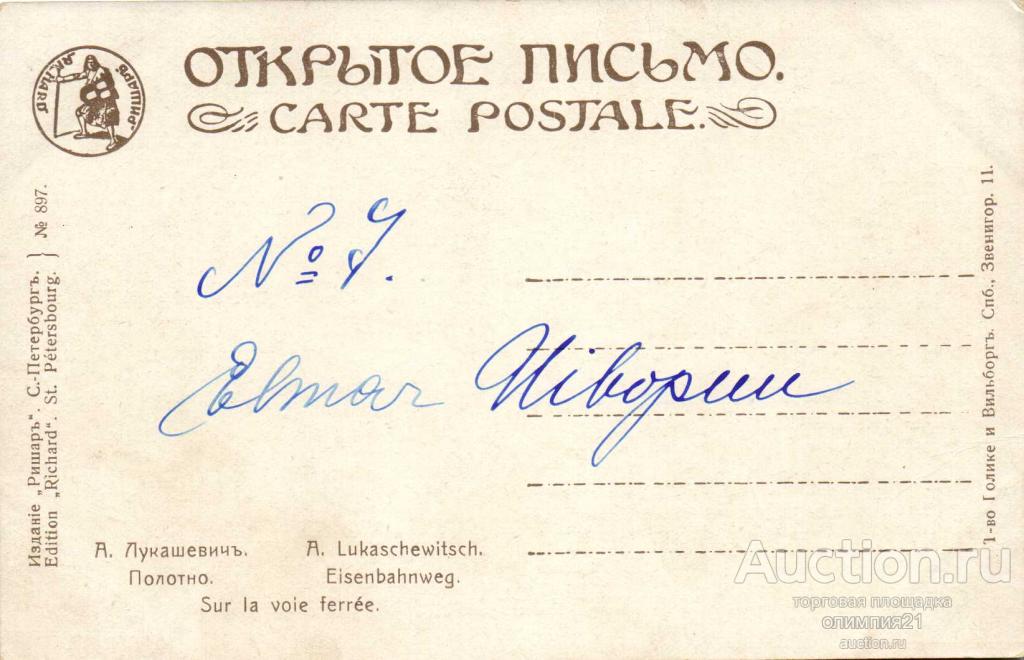 ОТКРЫТОЕ ПИСЬМО.
CARTE POSTALE.
"РИШАРЪ" "RICHARD"
Изданіе „Ришаръ“. С.-Петербургъ.
Edition „Richard“. St. Pétersbourg.
№ 897.
№ 7.
Elmar
А. Лукашевичъ.
Полотно.
A. Lukaschewitsch.
Eisenbahnweg.
Sur la voie ferrée.
Т-во Голике и Вильборгъ. Спб., Звенигор. 11.
Auction.ru
торговая площадка
олимпия21
auction.ru